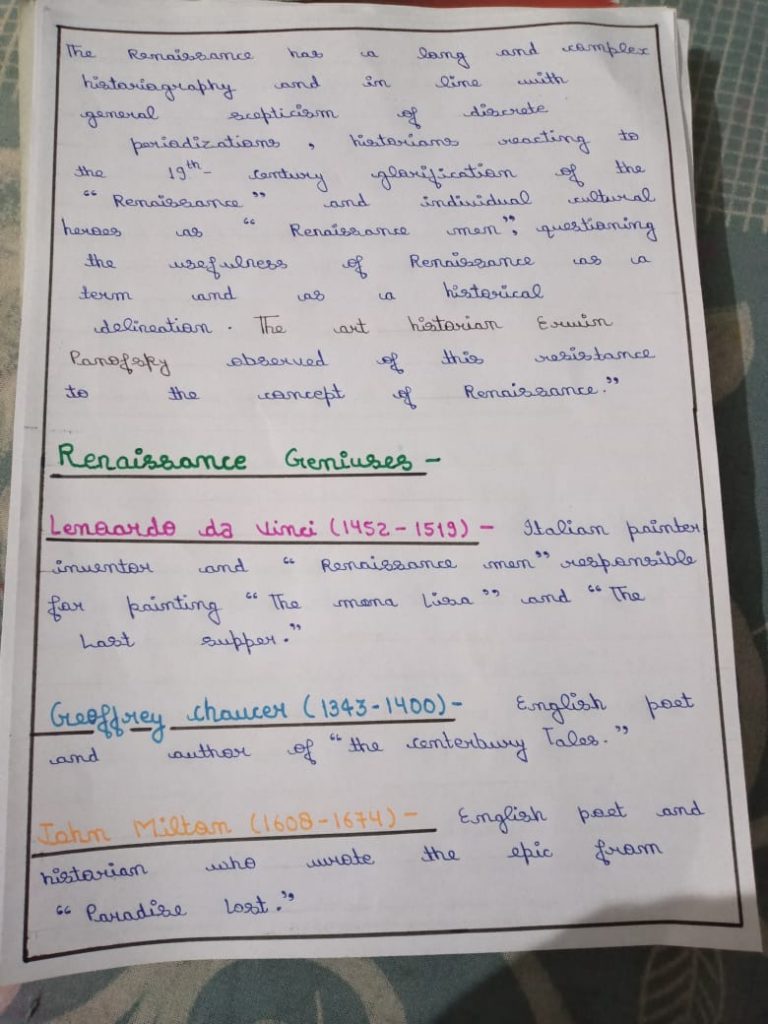 The Renaissance has a long and complex
historiography and in line with
general scepticism of discrete
periodizations, historians reacting to
the 19th- century glorification of the
"Renaissance" and individual cultural
heroes as "Renaissance men", questioning
the usefulness of Renaissance as a
term and as a historical
delineation. The art historian Erwin
Panofsky observed of this resistance
to the concept of Renaissance."
Renaissance Geniuses -
Lenoardo da Vinci (1452-1519) - Italian painter
inventor and "Renaissance men" responsible
for painting "The mona Lisa" and "The
Last supper."
Geoffrey chaucer (1343-1400)- English poet
and author of "the centerbury Tales."
John Milton (1608-1674)- English poet and
historian who wrote the epic from
"Paradise Lost."